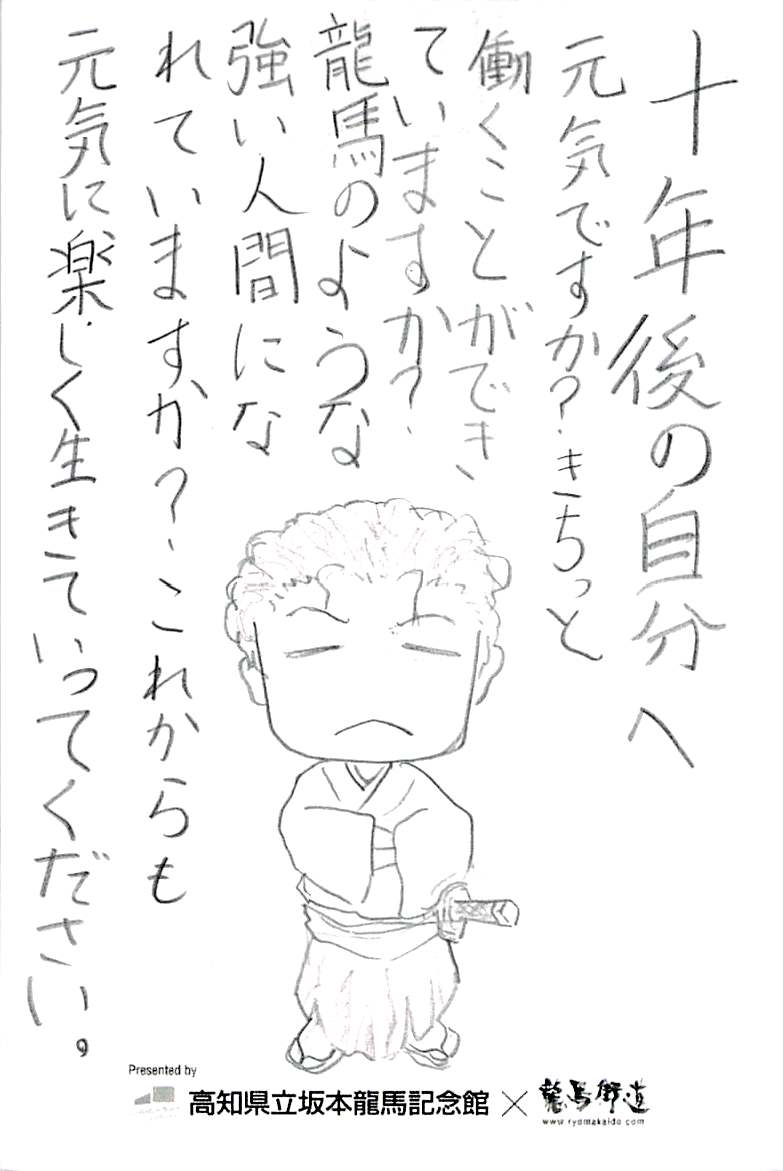 十年後の自分へ
元気ですか？きちっと
働くことができ
ていますか？
龍馬のような
強い人間にな
れていますか？これからも
元気に楽しく生きていってください。
Presented by
高知県立坂本龍馬記念館×龍馬街道
www.ryomakaido.com